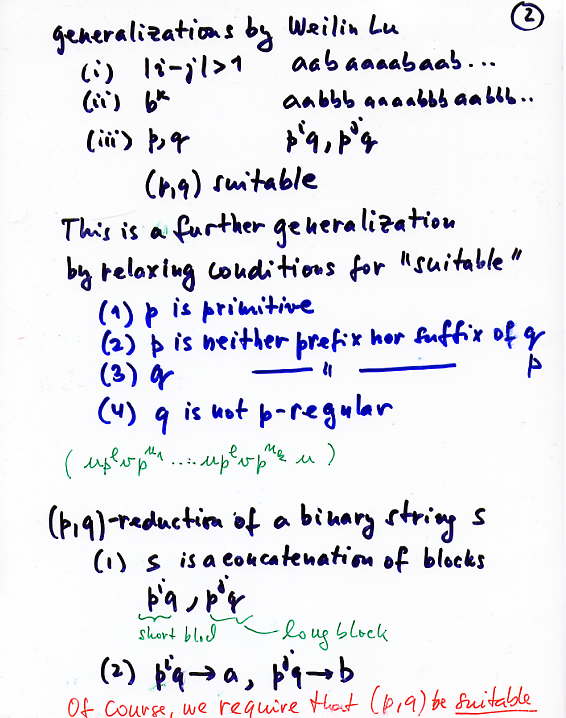 2
generalizations by Weilin Lu
(i) |i-j|>1 aabaaaabaab...
(ii) bᵏ aabbbaaaabbbaabbb..
(iii) p,q pⁱq, pʲq
(p,q) suitable
This is a further generalization
by relaxing conditions for "suitable"
(1) p is primitive
(2) p is neither prefix nor suffix of q
(3) q —— " —— p
(4) q is not p-regular
(upˡvpⁿ¹....upˡvpⁿᵏu)
(p,q)-reduction of a binary string s
(1) s is a concatenation of blocks
pⁱq, pʲq
short blod long block
(2) pⁱq→a, pʲq→b
Of course, we require that (p,q) be suitable